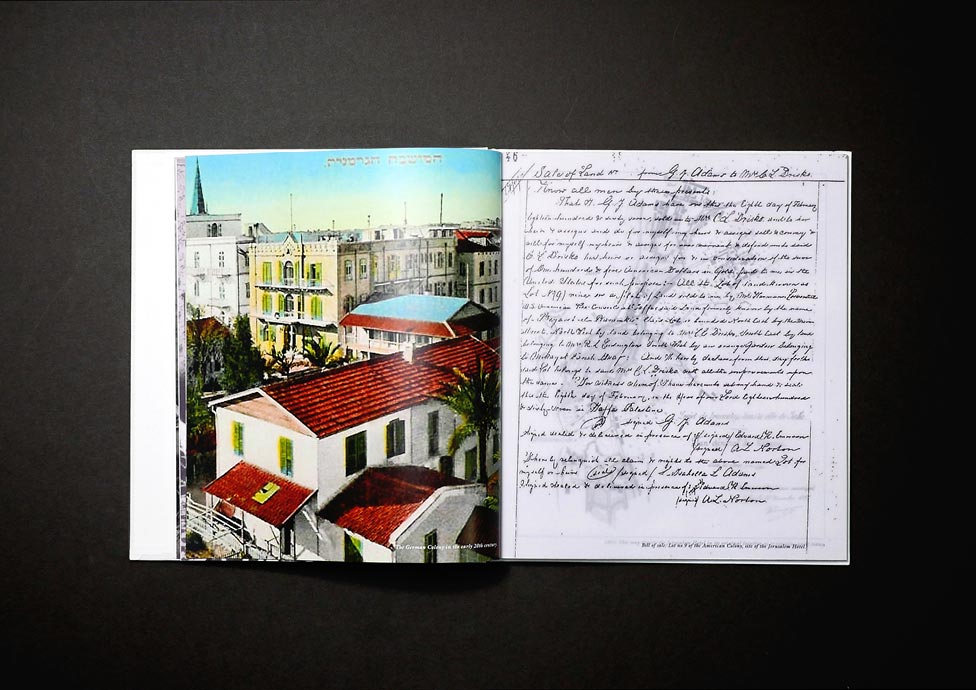 המושבה הגרמנית.
The German Colony in the early 20th century
Sale of Land from G. J. Adams to Mrs. C. L. Drisko.
Know all men by these presents:
That I G. J. Adams have on this the Eighth day of February
Eighteen hundred & sixty seven, sold to Mrs C. L. Drisko and to her
heirs & assigns and do for myself my heirs & assigns sell & convey &
will for myself my heirs & assigns for ever warrant & defend unto said
C. L. Drisko her heirs or assigns for & in consideration of the sum
of One hundred & four American Dollars in Gold, paid to me in the
United States for such purpose. All the Lot of land known as
Lot No. 9
street North West by land belonging to Mrs C. L. Drisko, South East by land
belonging to Mrs R. L. South West by an orange Garden belonging
to And I hereby declare from this day forth
said Lot belongs to said Mrs C. L. Drisko with all the improvements upon
the same. In witness whereof I have hereunto set my hand & seal
this the Eighth day of February, in the year of our Lord Eighteen hundred
& sixty seven in Jaffa Palestine
signed G. J. Adams
Signed sealed & delivered in presence of (signed)
(signed) A. L. Norton
I hereby relinquish all claim & rights to the above named Lot for
myself or heirs (signed) L. Adams
Signed sealed & delivered in presence of
(signed) A. L. Norton
Bill of sale: Lot no 9 of the American Colony, site of the Jerusalem Hotel